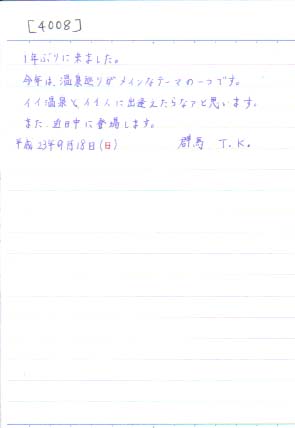 [4008]
1年ぶりに来ました。
今年は、温泉巡りがメインなテーマの一つです。
イイ温泉と、イイ人に出逢えたらなァと思います。
また、近日中に登場します。
平成23年9月18日(日) 群馬 T.K.